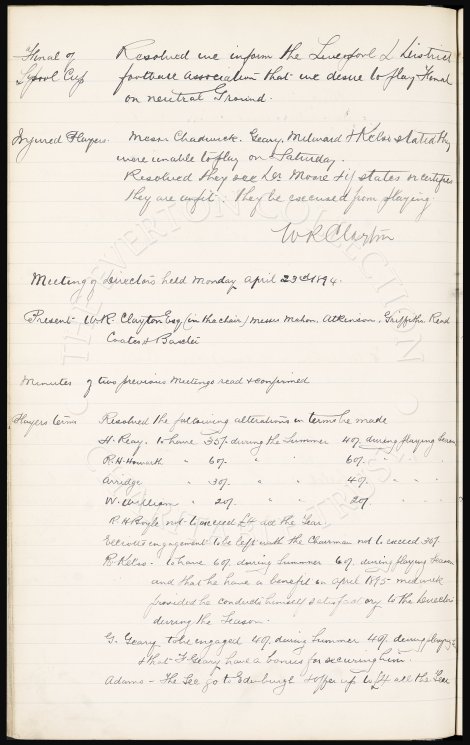 Final of Resolved we inform the Liverpool & District
L'pool Cup football association that we desire to play Final
on neutral Ground.
Injured Players Messrs Chadwick, Geary, Milward & Kelso stated they
were unable to play on Saturday.
Resolved they see Dr Moore & if states or certifies
they are unfit: they be excused from playing
W R Clayton
Meeting of Directors held Monday April 23rd 1894.
Present W.R. Clayton Esq (in the chair) Messrs Mahon, Atkinson, Griffiths, Read
Coates & Baxter
Minutes of two previous Meetings read & confirmed
Players terms Resolved the following alterations in terms be made
H. Reay. to have 35/- during the Summer 40/- during playing Season
R.H. Howarth " 60/- " " 60/- " "
Arridge " 30/- " " 40/- " "
W. Williams " 20/- " " 20/- " "
R H Boyle not to exceed £4 all the Year.
Elliotts engagement to be left with the Chairman not to exceed 30/-
R. Kelso - to have 60/- during Summer 60/- during playing Season
and that he have a benefit in April 1895 midweek
provided he conducts himself satisfactory to the Directors
during the Season.
G. Geary to be engaged 40/- during Summer 40/- during playing
& that F Geary have a bonus for securing him.
Adams - The Sec go to Edinburgh & offer up to £4 all the Year
THE EVERTON COLLECTION